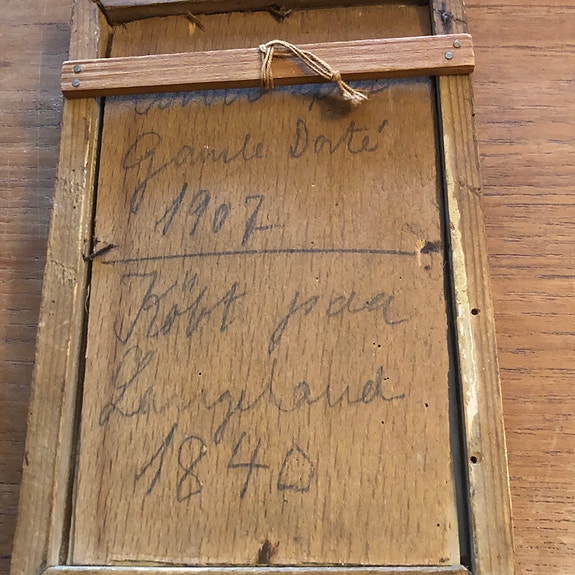 Gamle Dorté
1907
Köbt paa
Langeland
1840